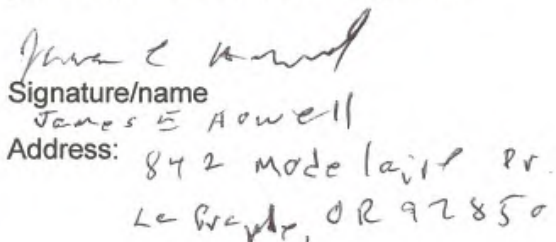 James E Howell
Signature/name
James E Howell
Address: 842 Modelaire Dr.
La Grande, OR 97850